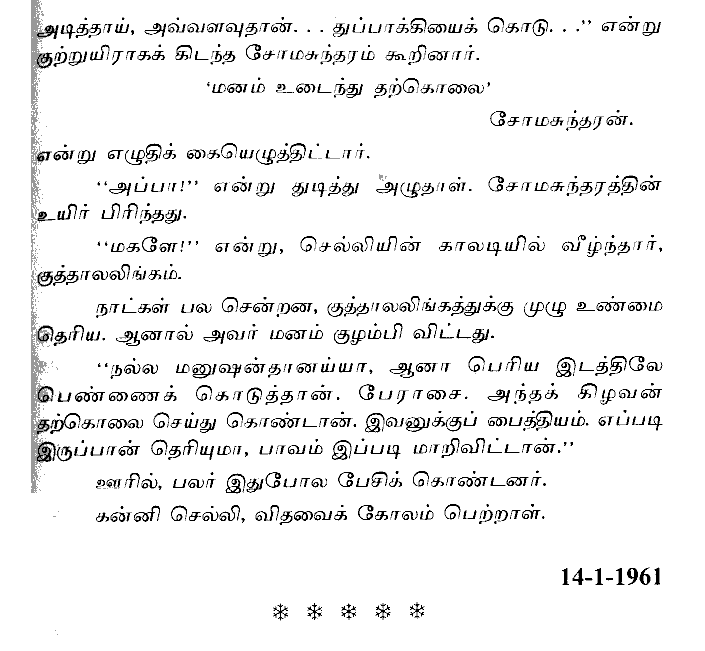 அடித்தாய், அவ்வளவுதான். . . துப்பாக்கியைக் கொடு. . .'' என்று
குற்றுயிராகக் கிடந்த சோமசுந்தரம் கூறினார்.
'மனம் உடைந்து தற்கொலை'
சோமசுந்தரன்.
என்று எழுதிக் கையெழுத்திட்டார்.
''அப்பா!'' என்று துடித்து அழுதாள். சோமசுந்தரத்தின்
உயிர் பிரிந்தது.
''மகளே!'' என்று, செல்லியின் காலடியில் வீழ்ந்தார்,
குத்தாலலிங்கம்.
நாட்கள் பல சென்றன, குத்தாலலிங்கத்துக்கு முழு உண்மை
தெரிய. ஆனால் அவர் மனம் குழம்பி விட்டது.
''நல்ல மனுஷன்தானய்யா, ஆனா பெரிய இடத்திலே
பெண்ணைக் கொடுத்தான். பேராசை. அந்தக் கிழவன்
தற்கொலை செய்து கொண்டான். இவனுக்குப் பைத்தியம். எப்படி
இருப்பான் தெரியுமா, பாவம் இப்படி மாறிவிட்டான்.''
ஊரில், பலர் இதுபோல பேசிக் கொண்டனர்.
கன்னி செல்லி, விதவைக் கோலம் பெற்றாள்.
14-1-1961